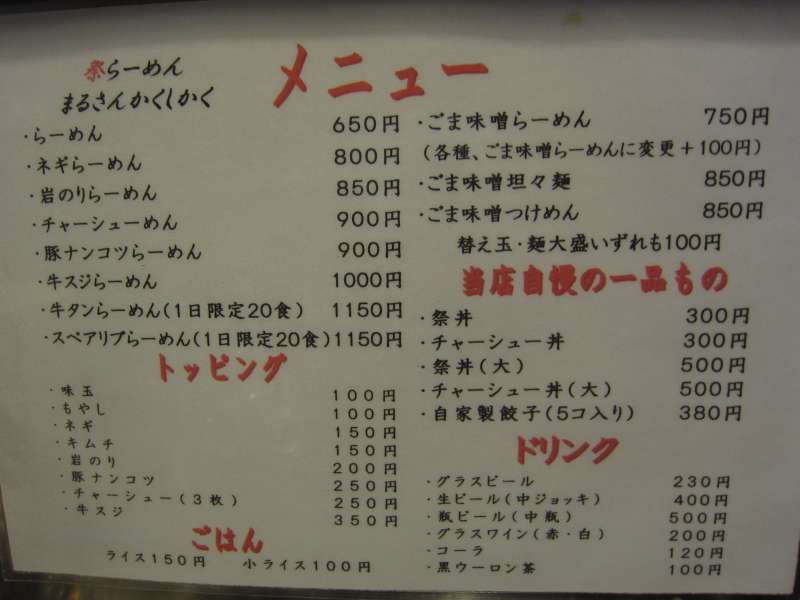 メニュー
祭らーめん
まるさんかくしかく
・らーめん 650円
・ネギらーめん 800円
・岩のりらーめん 850円
・チャーシューめん 900円
・豚ナンコツらーめん 900円
・牛スジらーめん 1000円
・牛タンらーめん(1日限定20食) 1150円
・スペアリブらーめん(1日限定20食) 1150円
トッピング
・味玉 100円
・もやし 100円
・ネギ 150円
・キムチ 150円
・岩のり 200円
・豚ナンコツ 250円
・チャーシュー(3枚) 250円
・牛スジ 350円
ごはん
ライス150円 小ライス100円
・ごま味噌らーめん 750円
(各種、ごま味噌らーめんに変更+100円)
・ごま味噌坦々麺 850円
・ごま味噌つけめん 850円
替え玉・麺大盛いずれも100円
当店自慢の一品もの
・祭丼 300円
・チャーシュー丼 300円
・祭丼(大) 500円
・チャーシュー丼(大) 500円
・自家製餃子(5コ入り) 380円
ドリンク
・グラスビール 230円
・生ビール(中ジョッキ) 400円
・瓶ビール(中瓶) 500円
・グラスワイン(赤・白) 200円
・コーラ 120円
・黒ウーロン茶 100円